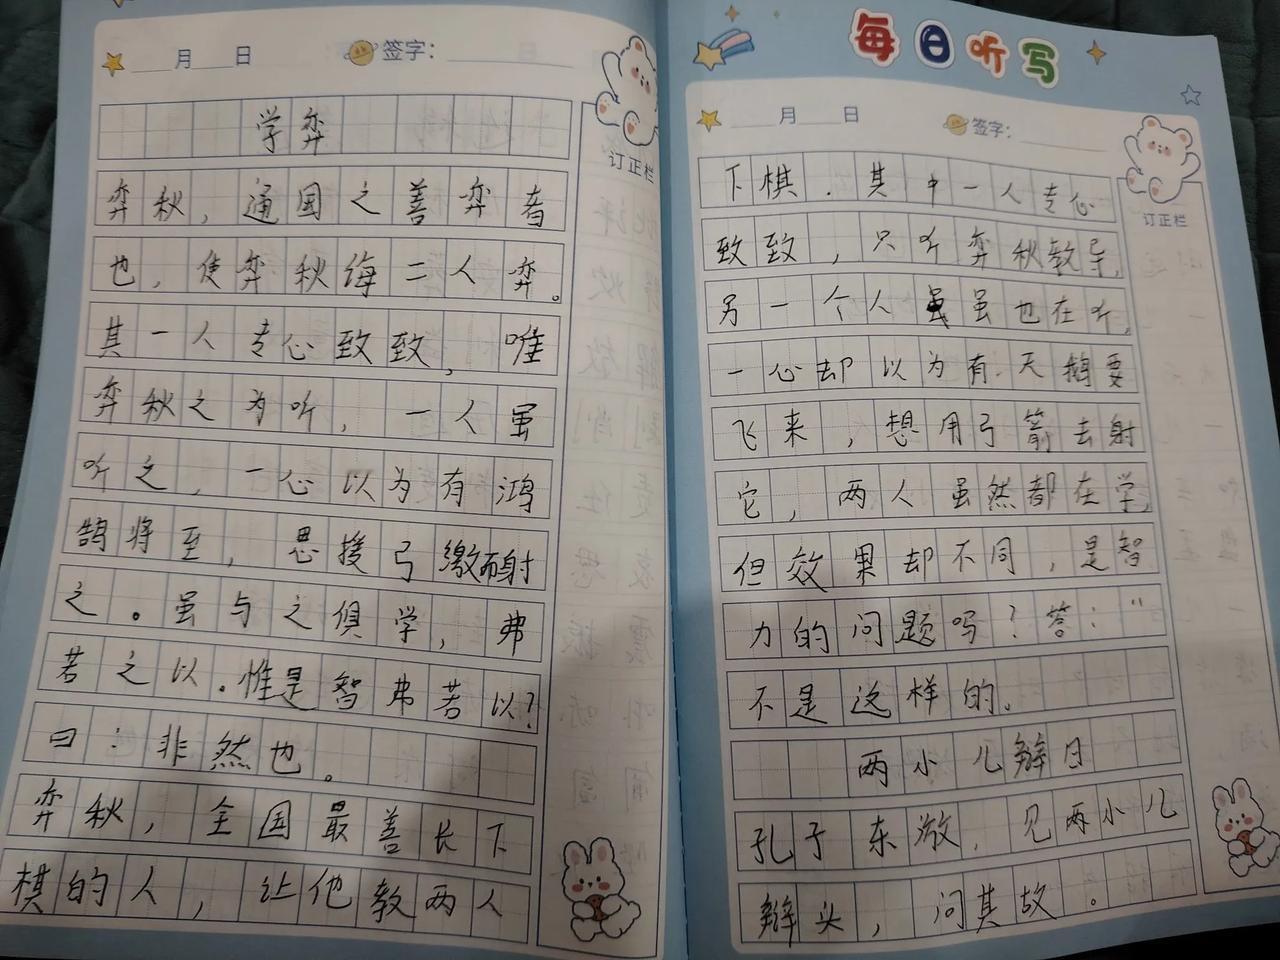 月 日 签字:
订正栏
学弈
弈秋,通国之善弈者
也,使弈秋海二人弈。
其一人专心致致,唯
弈秋之为听,一人虽
听之,一心以为有鸿
鹄将至,思援弓缴而射
之。虽与之俱学,弗
若之以.惟是智弗若以?
曰:非然也。
弈秋,全国最善长下
棋的人,让他教两人
每日听写
月 日 签字:
订正栏
下棋.其中一人专心
致致,只听弈秋教导,
另一个人虽也在听,
一心却以为有.天鹅要
飞来,想用弓箭去射
它,两人虽然都在学,
但效果却不同,是智
力的问题吗?答:"
不是这样的。
两小儿辩日
孔子东游,见两小儿
辩头,问其故。